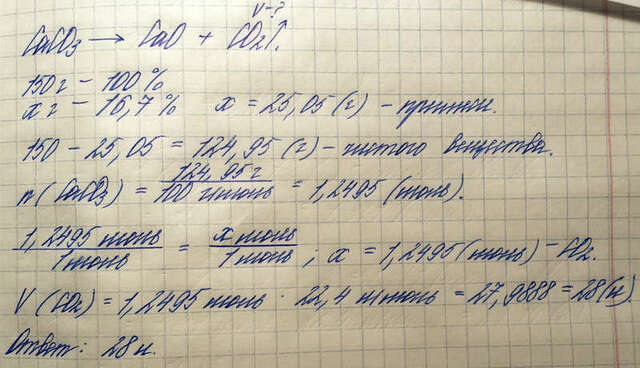 V-?
CaCO₃ → CaO + CO₂↑.
150 г – 100 %
x г – 16,7 % x = 25,05 (г) – примеси.
150 – 25,05 = 124,95 (г) – чистого вещества.
n (CaCO₃) = 124,95 г / 100 г/моль = 1,2495 (моль).
1,2495 моль / 1 моль = x моль / 1 моль ; x = 1,2495 (моль) – CO₂.
V (CO₂) = 1,2495 моль · 22,4 л/моль = 27,9888 = 28 (л)
Ответ: 28 л.